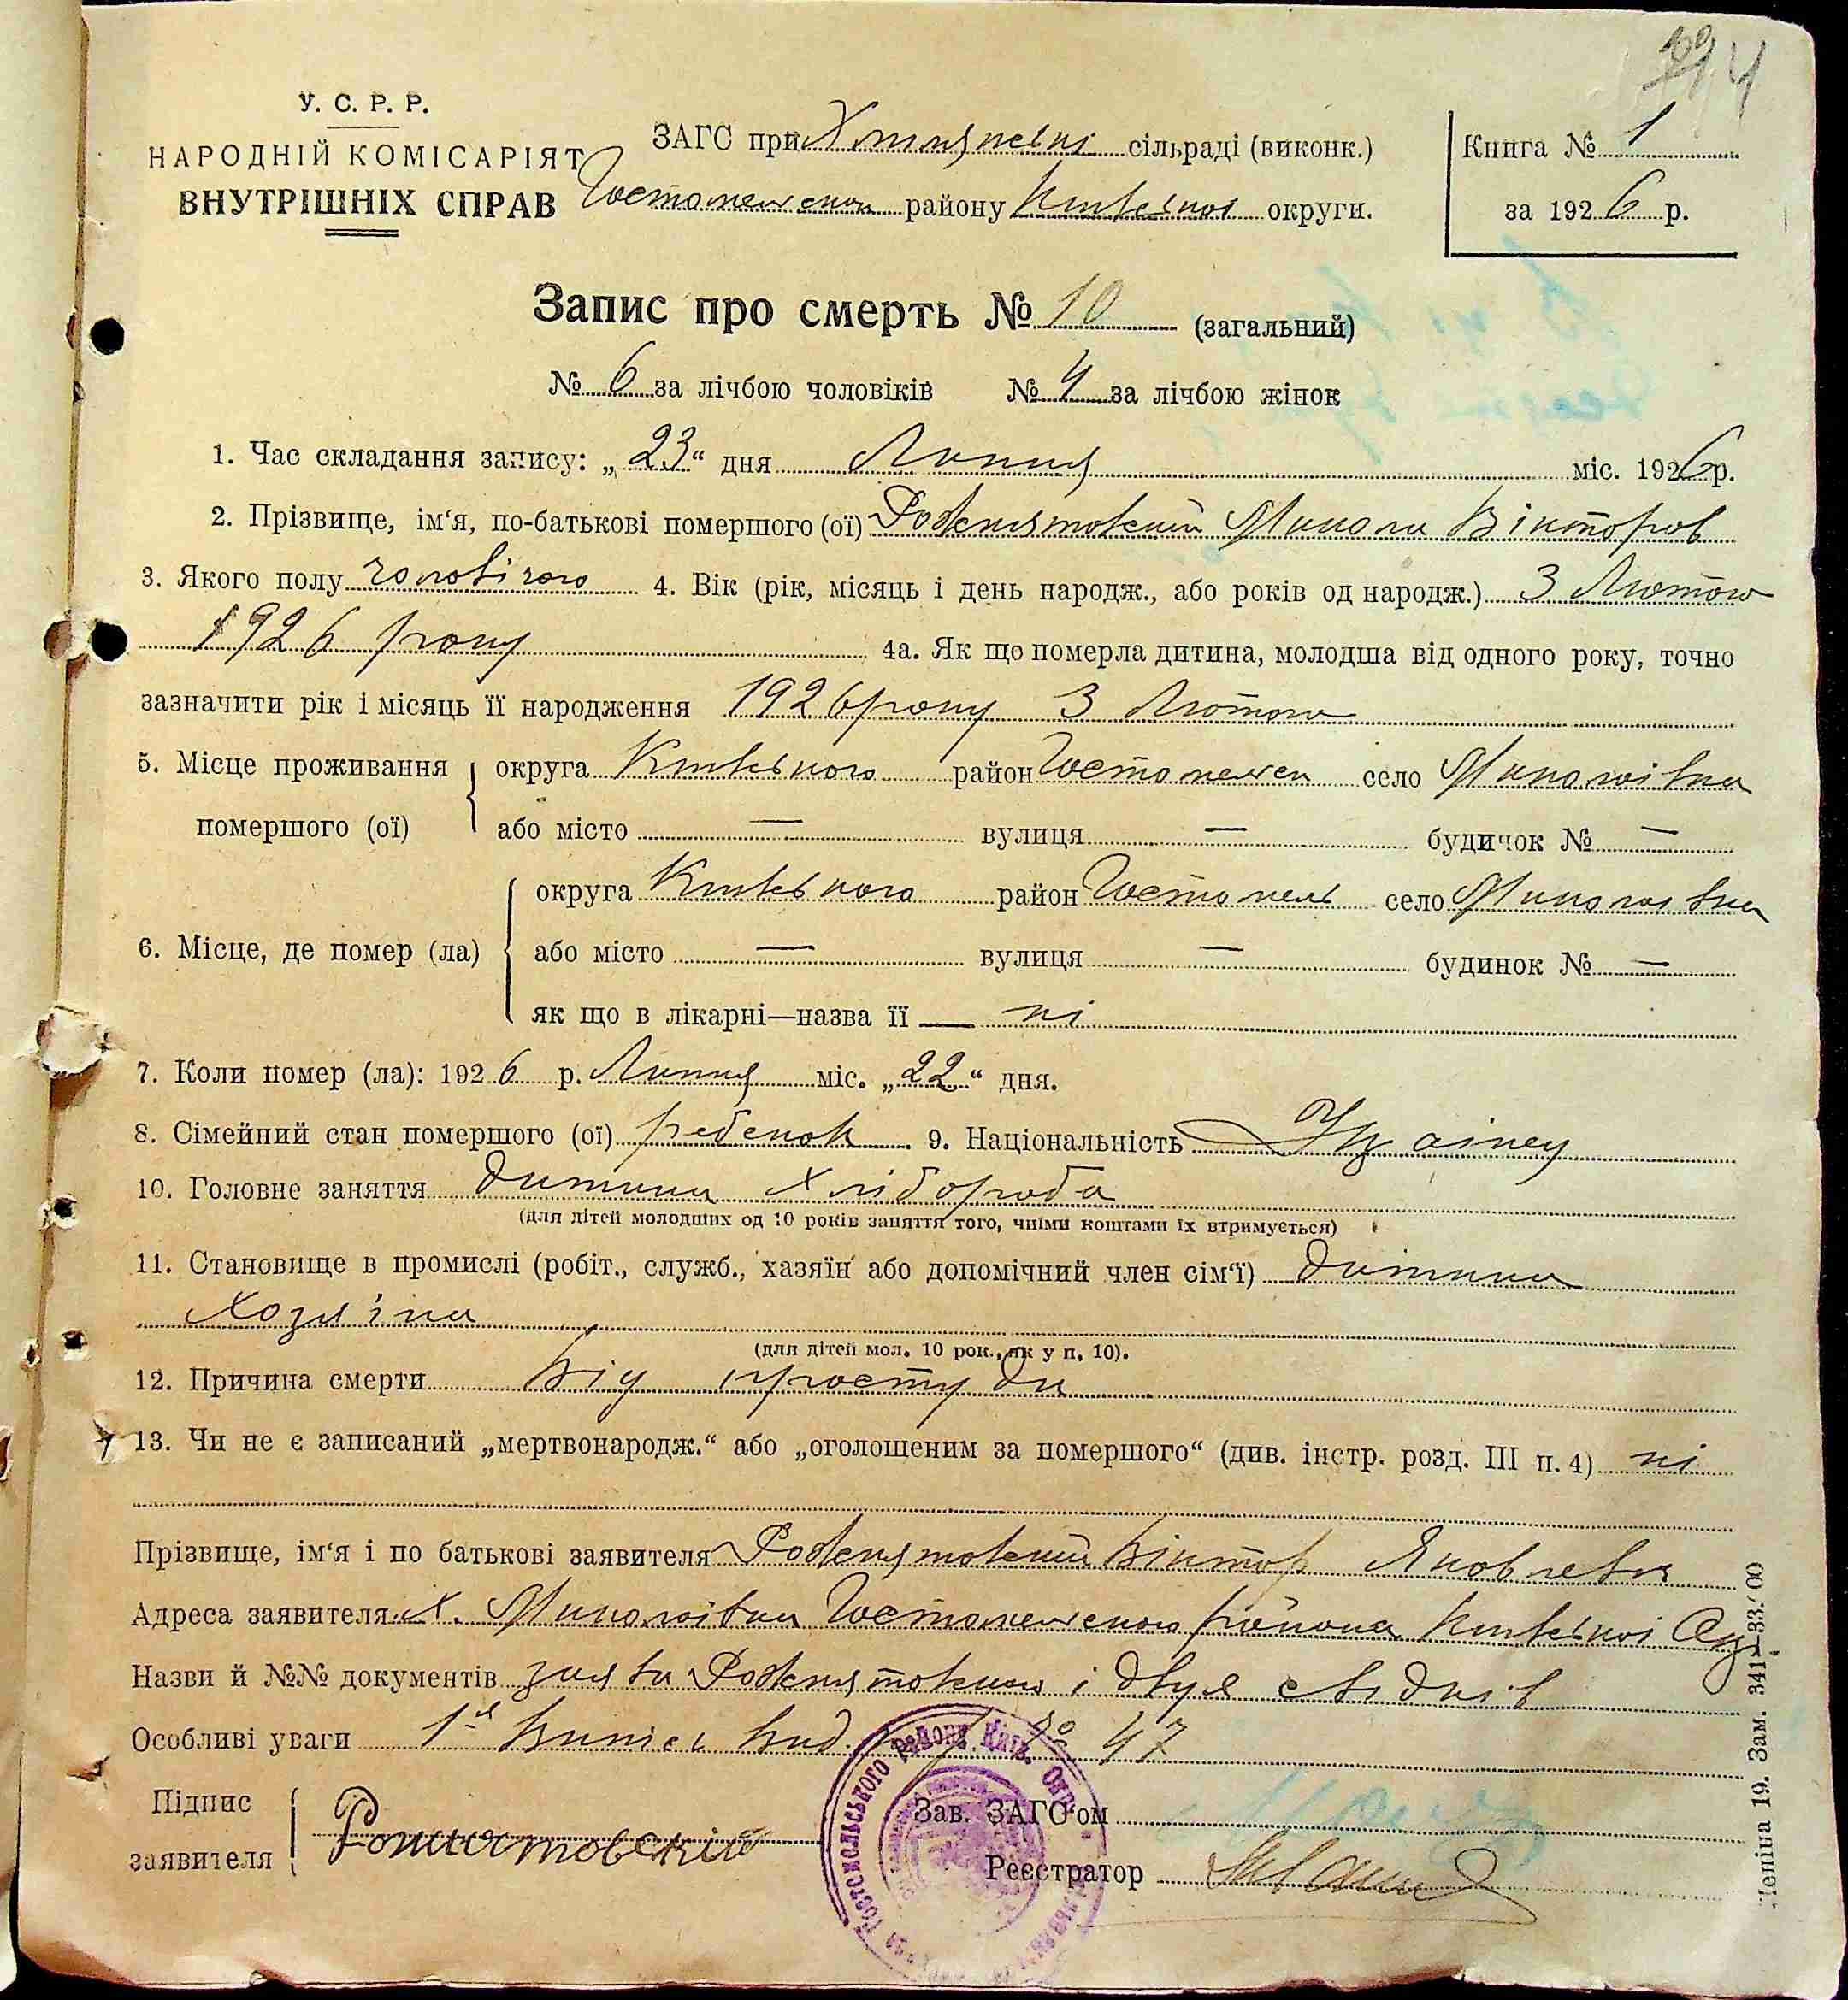 У. С. Р. Р.
НАРОДНІЙ КОМІСАРІЯТ
ВНУТРІШНІХ СПРАВ
ЗАГС при сільраді (виконк.)
району Київської округи.
Книга № 1
за 1926 р.
Запис про смерть № 10 (загальний)
№ 6 за лічбою чоловіків № 4 за лічбою жінок
1. Час складання запису: „23“ дня Липня міс. 1926 р.
2. Прізвище, ім‘я, по-батькові помершого (ої) Микола Вікторов
3. Якого полу чоловічого 4. Вік (рік, місяць і день народж., або років од народж.) 3 Лютого
1926 року 4а. Як що померла дитина, молодша від одного року, точно
зазначити рік і місяць її народження 1926 року 3 Лютого
5. Місце проживання помершого (ої)
округа Київського район Гостомельск село Миколаївка
або місто — вулиця — будинок № —
6. Місце, де помер (ла)
округа Київського район Гостомель село Миколаївка
або місто — вулиця — будинок № —
як що в лікарні—назва її — ні
7. Коли помер (ла): 1926 р. Липня міс. „22“ дня.
8. Сімейний стан помершого (ої) ребенок 9. Національність Українец
10. Головне заняття Дитина Хлібороба
(для дітей молодших од 10 років заняття того, чиїми коштами їх втримується)
11. Становище в промислі (робіт., служб., хазяїн або допомічний член сім‘ї) Дитина
Хозяїна
(для дітей мол. 10 рок., як у п. 10).
12. Причина смерти Від простуди
13. Чи не є записаний „мертвонародж.“ або „оголошеним за помершого“ (див. інстр. розд. III п. 4) ні
Прізвище, ім‘я і по батькові заявителя Віктор Яковлевич
Адреса заявителя х. Миколаївка Гостомельского района Київської Окр
Назви й №№ документів заява і двух свідків
Особливі уваги 1й № 47
Підпис заявителя
Зав. ЗАГС‘ом
Реєстратор
Леніна 19. Зам. 341